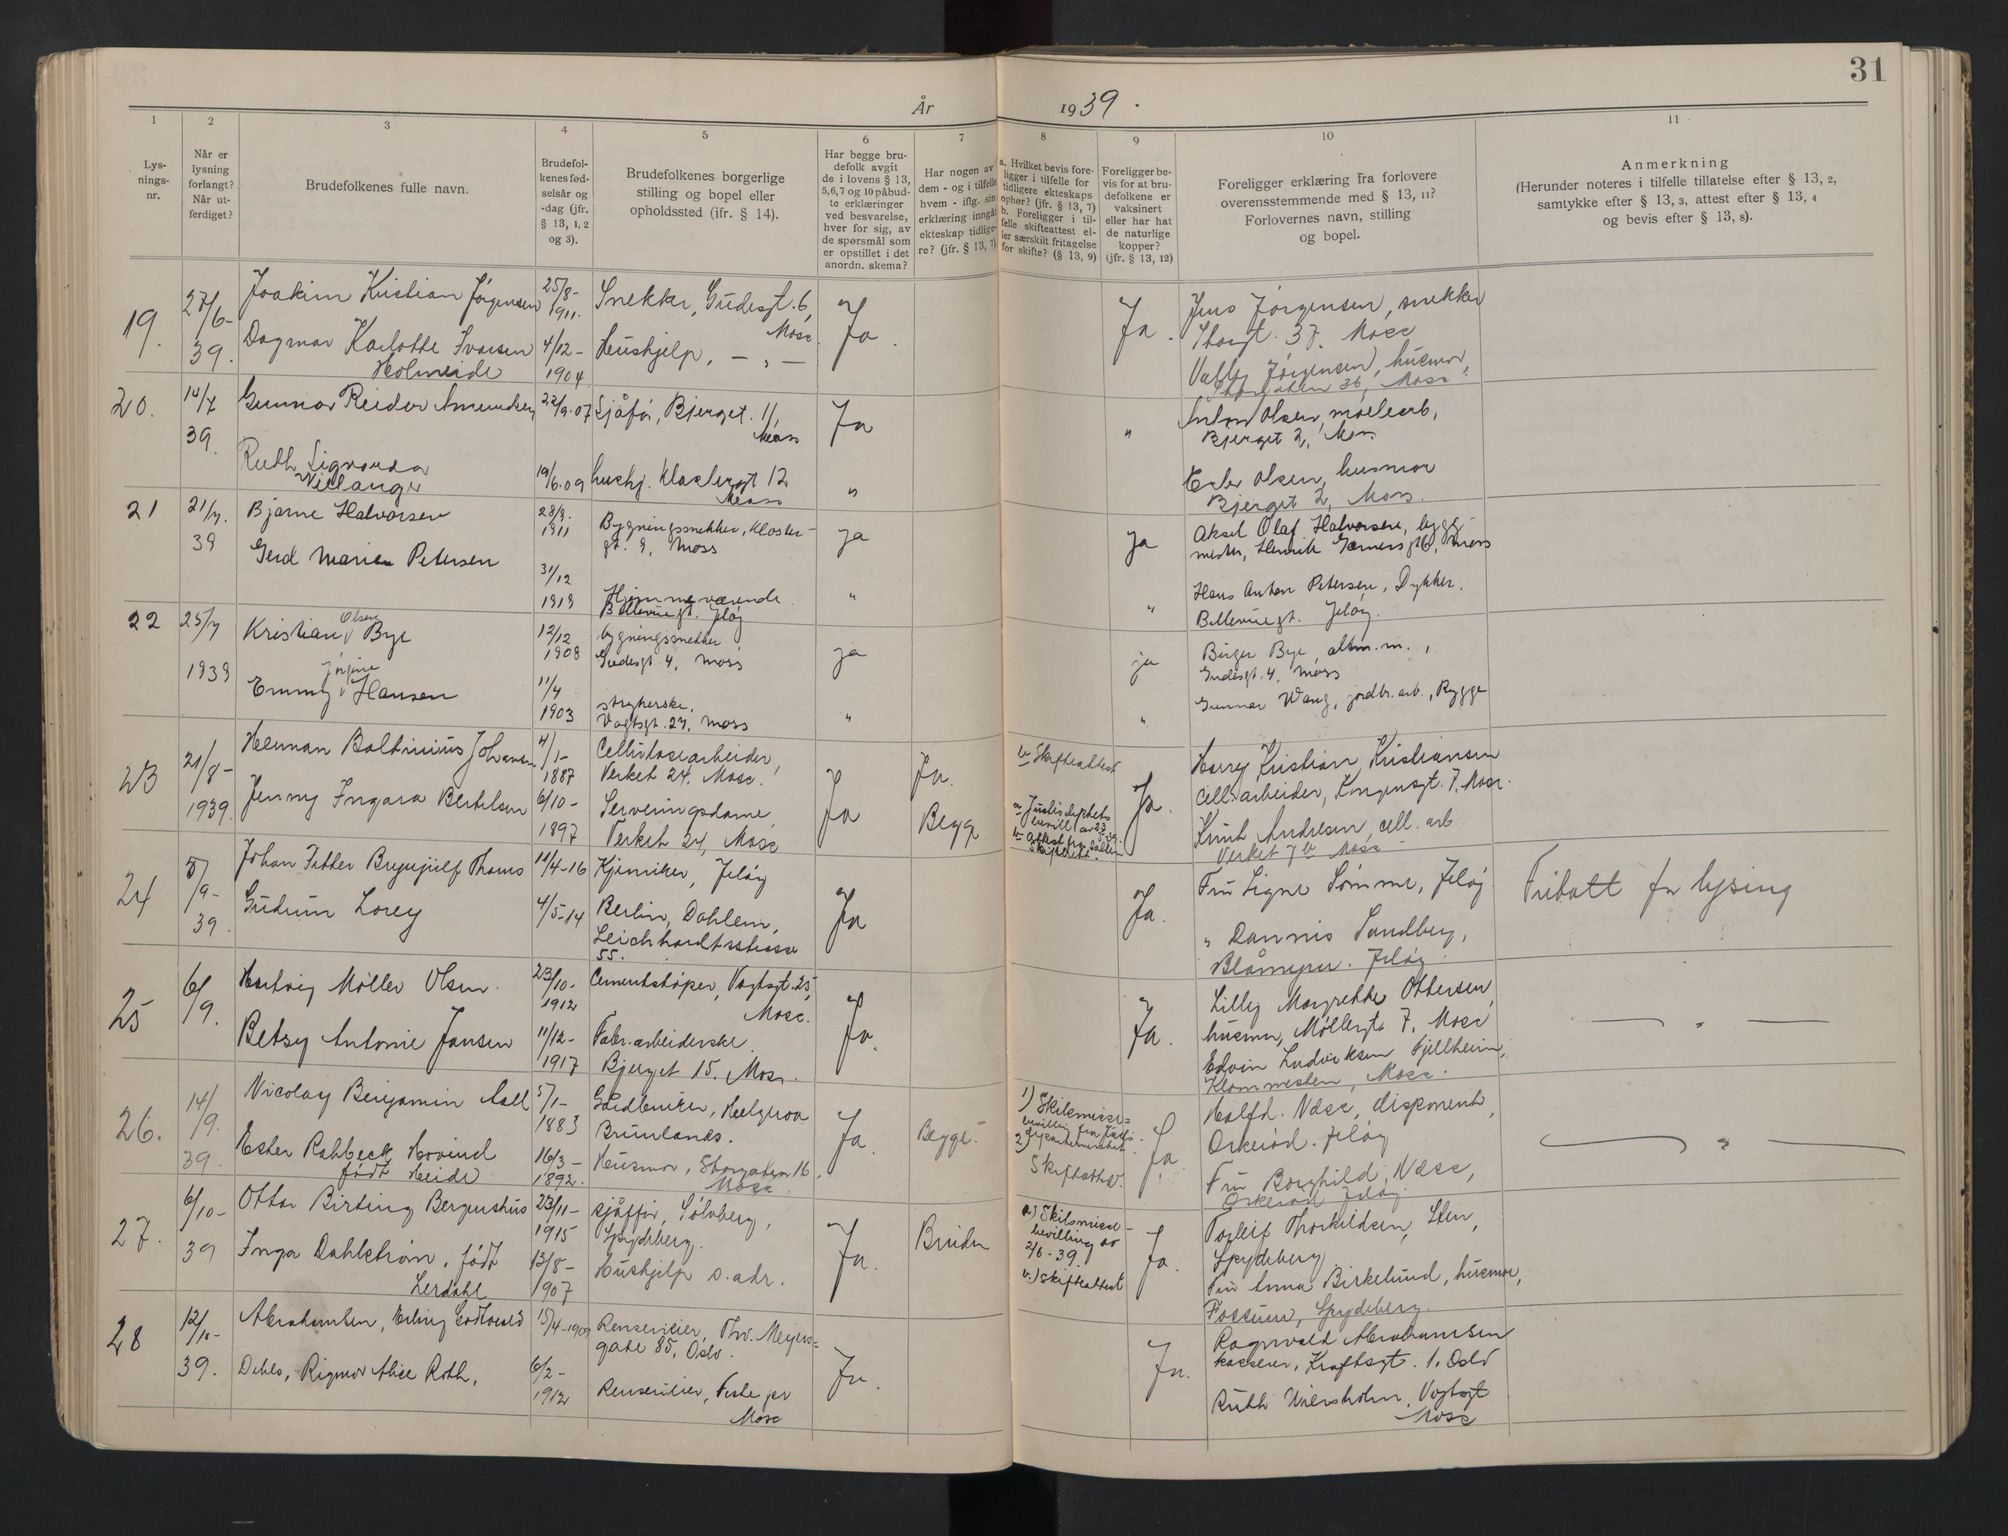 31
År 1939.
1 2 3 4 5 6 7 8 9 10 11
Lys-
nings-
nr.
Når er
lysning
forlangt?
Når ut-
ferdiget?
Brudefolkenes fulle navn.
Brudefol-
kenes fød-
selsår og
-dag (jfr.
§ 13, 1, 2
og 3).
Brudefolkenes borgerlige
stilling og bopel eller
opholdssted (ifr. § 14).
Har begge bru-
defolk avgit
de i lovens § 13,
5, 6, 7 og 10 påbud-
te erklæringer
ved besvarelse,
hver for sig, av
de spørsmål som
er opstillet i det
anordn. skema?
Har nogen av
dem - og i tilfelle
hvem - iflg. sin
erklæring inngått
ekteskap tidlige-
re? (jfr. § 13, 7).
a. Hvilket bevis fore-
ligger i tilfelle for
tidligere ekteskaps
ophør? (jfr. § 13, 7)
b. Foreligger i til-
felle skifteattest el-
ler særskilt fritagelse
for skifte? (§ 13, 9)
Foreligger be-
vis for at bru-
defolkene er
vaksinert
eller har hat
de naturlige
kopper?
(jfr. § 13, 12)
Foreligger erklæring fra forlovere
overensstemmende med § 13, 11?
Forlovernes navn, stilling
og bopel.
Anmerkning
(Herunder noteres i tilfelle tillatelse efter § 13, 2,
samtykke efter § 13, 3, attest efter § 13, 4
og bevis efter § 13, 8).
19.
27/6-
39.
Joakim Kristian Jørgensen
Dagmar Karlotte Ivarsen
Holmeide
25/8-
1911.
4/12-
1904.
Snekker, Gudesgt. 6,
Moss.
Hushjelp, — „ —
Ja.
Ja.
Jens Jørgensen, snekker
Storgt. 37. Moss
Valby Jørgensen, husmor,
Storgaten 36, Moss.
20.
14/7
39.
Gunnar Reidar Amundsen
Ruth Sigvarda
22/9.07
19/6.09
Sjåfør, Bjerget. 11,
Moss
hushj. Klostergt 12
Moss
Ja
„
„
Anton Olsen, møllearb,
Bjerget 2, Moss
Ester Olsen, husmor
Bjerget 2, Moss.
21
21/7.
39
Bjarne Halvorsen
Gerd Marie Petersen
28/9.
1911
31/12
1919
Bygningssnekker, Kloster-
gt. 9, Moss
Hjemmeværende
Bellevuegt. Jeløy
Ja
„
Ja
„
Aksel Olaf Halvorsen, bygg-
mester, Henrik Gerners gt 6, Moss
Hans Anton Petersen, Dykker.
Bellevuegt. Jeløy.
22
25/7
1939
Olsen
Kristian Bye
Jørgine
Emmy Hansen
12/12
1908
11/4
1903
bygningssnekker
Gudesgt. 4, Moss
strykerske,
Vogtsgt. 27, Moss
ja
„
ja
„
Birger Bye, altm. m.,
Gudesgt. 4, Moss
Gunnar Wang, jordbr. arb., Rygge
23
21/8-
1939.
Herman Baltinius Johansen
Jenny Ingara Bertelsen
4/1-
1887
6/10-
1897
Cellulosearbeider,
Verket 24. Moss.
Serveringsdame,
Verket 24, Moss
Ja
Ja.
Begge
b Skifteattest
Ja.
Harry Kristian Kristiansen
cell. arbeider, Kongensgt. 7, Moss.
Knut Andresen, cell. arb.
Verket 7b Moss.
24
5/9-
39.
Johan Fetter Brynjulf Thams
Gudrun Lorey
11/4-16
4/5-14
Kjemiker, Jeløy
Berlin, Dahlem,
Leichhardtsstrasse
55.
Ja
Ja.
Fru Signe Sømme, Jeløy
„ Dannis Sandberg,
Blåmeisen. Jeløy.
Fribatt for lysing
25
6/9.
Hertvig Møller Olsen.
Betsy Antonie Jansen
23/10-
1912
11/12-
1917
Cementstøper, Vogtsgt. 25,
Moss.
Fabr.arbeiderske.
Bjerget 15. Moss.
Ja.
Ja.
Lilly Margrethe Ottersen,
husmor, Møllergt. 7. Moss
Edvin Ludviksen Fjellheim,
Klommesten, Moss.
— „ —
26.
14/9.
39.
Nicolay Benjamin Aall
Ester Rahbeck Hovind
født Heide
5/1-
1883
16/3-
1892.
Gårdbruker, Helgeroa
Brunlanes.
Husmor, Storgaten 16.
Moss.
Ja.
Begge.
1) Skilsmisse-
bevilling fra Just.-
departementet.
2)
Skifteattest.
Ja.
Halfd. Næss, disponent,
Orkerød. Jeløy
Fru Borghild Næss,
Orkerød Jeløy
— „ —
27.
6/10-
39
Ottar Birting Bergershus
Inga Dahlstrøm, født
Lerdahl
23/11-
1915
13/8-
1907
sjåffør, Sølvberg,
Spydeberg.
Hushjelp s. adr.
Ja.
Bruden
a) Skilsmisse-
bevilling av
2/6-39.
b.) skifteattest
Ja.
Torleif Thorkildsen, Sten,
Spydeberg
Fru Anna Birkelund, husmor,
Fossum, Spydeberg.
28
12/10-
39.
Abrahamsen, Erling Godtvald
Dehls, Rigmor Alice Roth.
15/4-1909
6/2-
1912
Renserieier, Thv. Meyers-
gate 85, Oslo.
Renserieier,
Moss
Ja.
Ja.
Ragnvald Abrahamsen
kasserer, Kraftsgt. 1. Oslo
Ruth Wiersholm, Vogtsgt
Moss